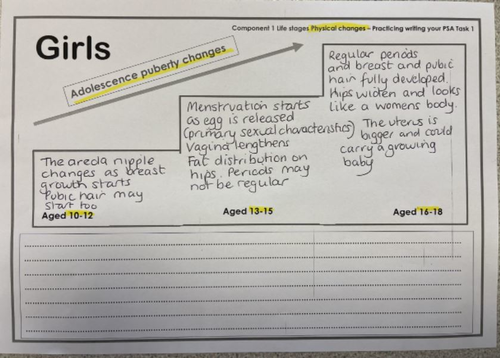 Component 1 Life stages Physical changes – Practicing writing your PSA Task 1
Girls
Adolescence puberty changes
The areola nipple
changes as breast
growth starts
Pubic hair may
start too
Aged 10-12
Menstruation starts
as egg is released
(primary sexual characteristics)
Vagina lengthens
Fat distribution on
hips. Periods may
not be regular
Aged 13-15
Regular periods
and breast and pubic
hair fully developed.
Hips widen and looks
like a womens body.
The uterus is
bigger and could
carry a growing
baby
Aged 16-18